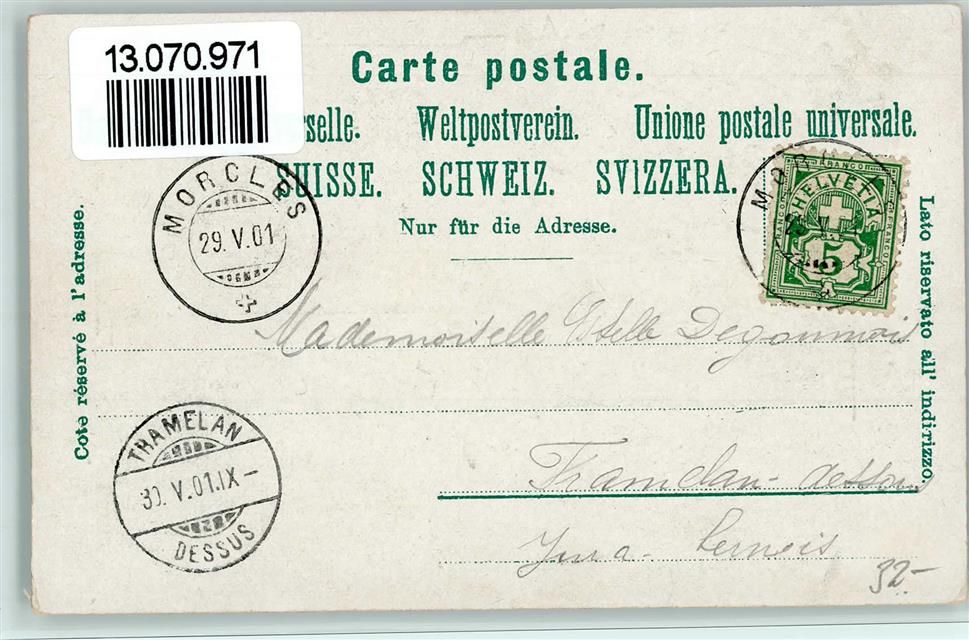 13.070.971
Carte postale.
rselle. Weltpostverein. Unione postale universale.
SUISSE. SCHWEIZ. SVIZZERA.
Nur für die Adresse.
Côté réservé à l'adresse.
Lato riservato all' indirizzo.
MORCLES
29.V.01
MOR
FRANCO
HELVETIA
FRANCO
FRANCO
5
Mademoiselle Estelle Degoumois
Tramelan-dessous
Jura-Bernois
TRAMELAN
30.V.01.IX-
DESSUS
32.-